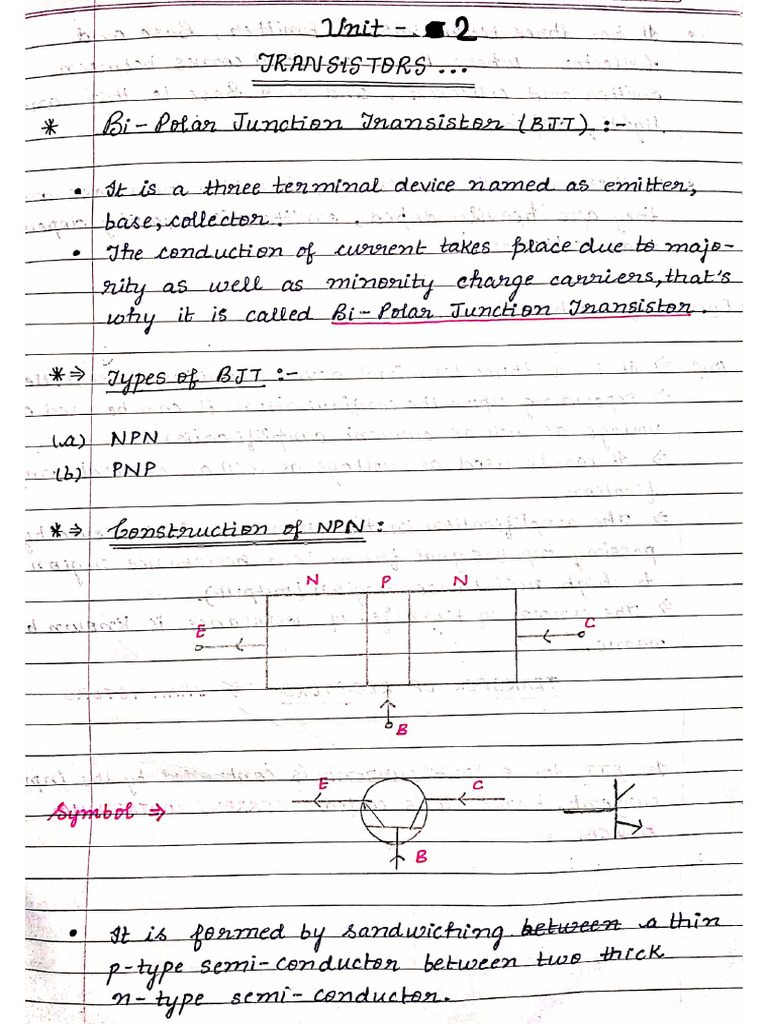 Unit - 2
TRANSISTORS...
* Bi-Polar Junction Transistor (BJT) :-
• It is a three terminal device named as emitter,
base, collector.
• The conduction of current takes place due to majo-
rity as well as minority charge carriers, that's
why it is called Bi-Polar Junction Transistor.
*⇒ Types of BJT :-
(a) NPN
(b) PNP
*⇒ Construction of NPN :
N P N
E C
B
E C
Symbol ⇒
B
• It is formed by sandwiching between a thin
p-type semi-conductor between two thick
n-type semi-conductor.